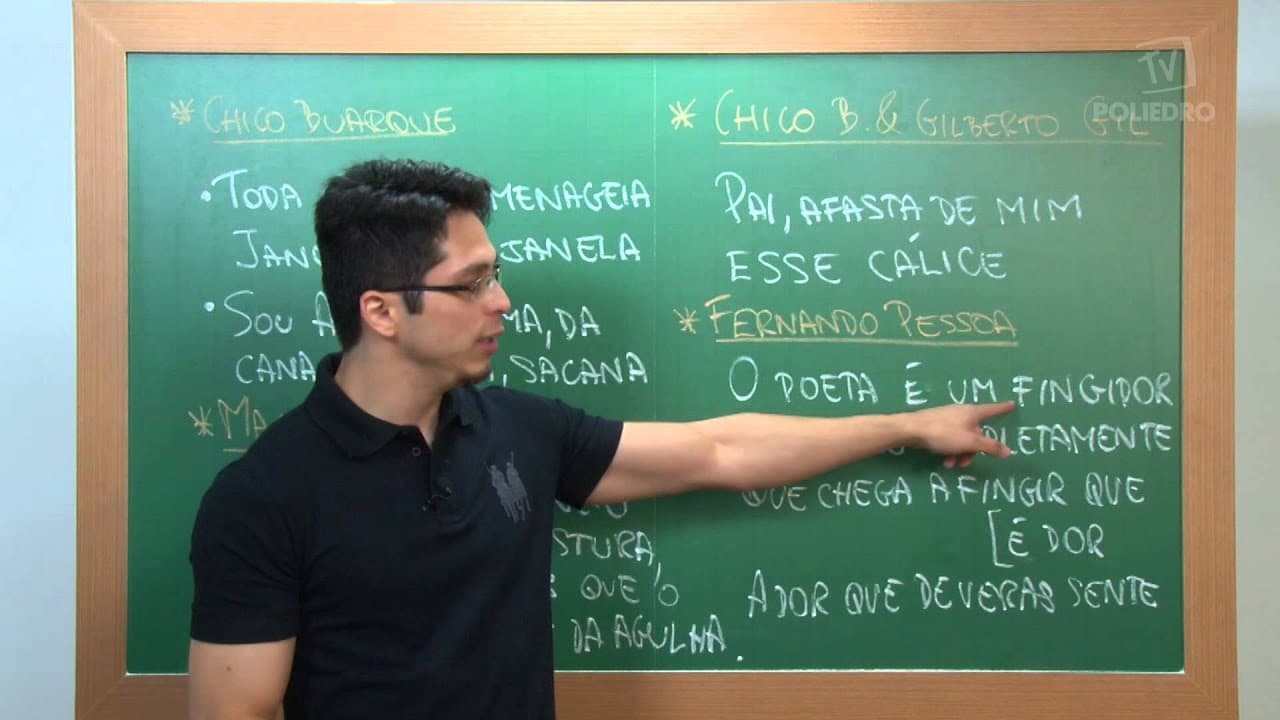 * CHICO BUARQUE
• TODA MENAGEIA
JANELA
• SOU MA, DA
CANA , SACANA
* MA
STURA,
QUE O
DA AGULHA.
TV
POLIEDRO
* CHICO B. & GILBERTO GIL
PAI, AFASTA DE MIM
ESSE CÁLICE
* FERNANDO PESSOA
O POETA É UM FINGIDOR
PLETAMENTE
QUE CHEGA A FINGIR QUE
[É DOR
A DOR QUE DEVERAS SENTE